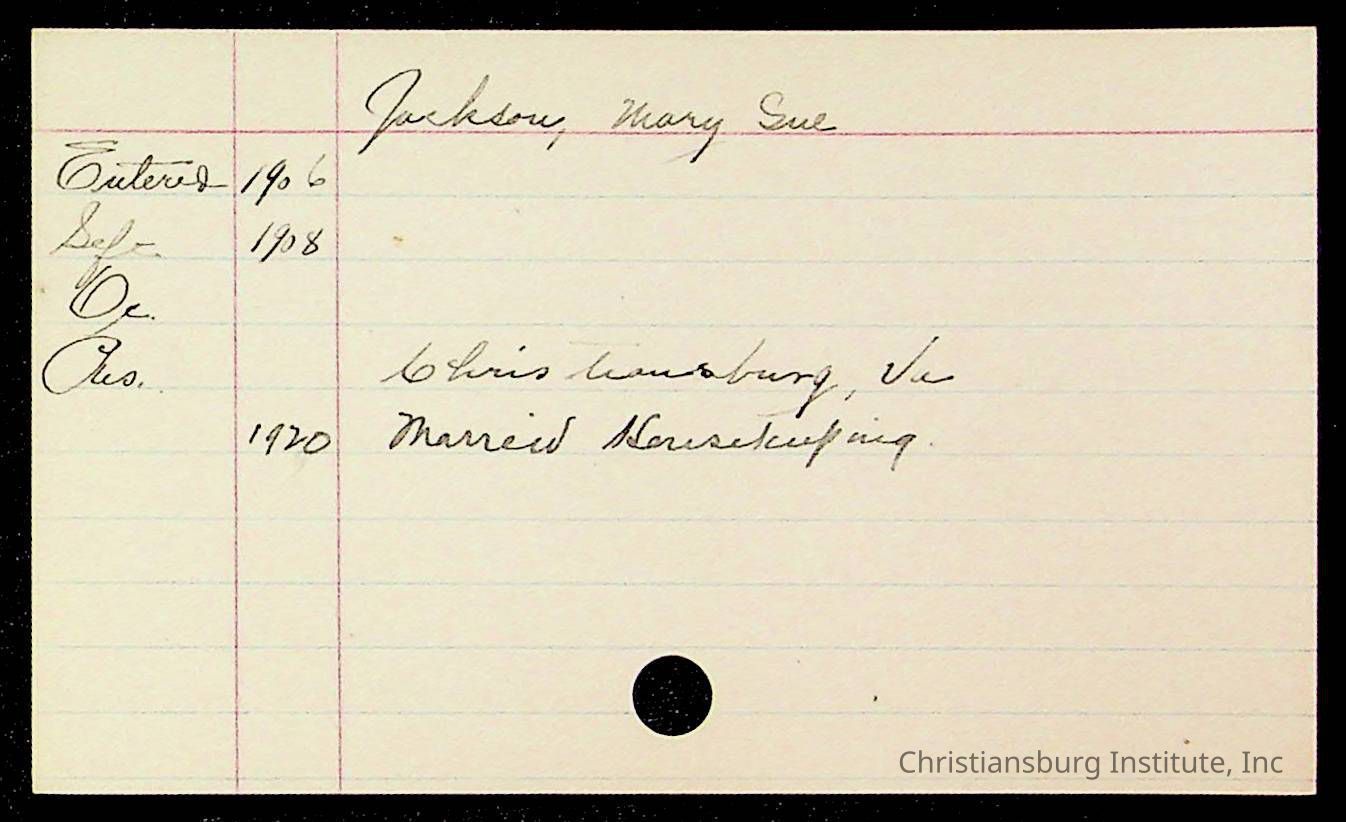 Jackson, Mary Sue
Entered 1906
Lef. 1908
Oc.
Res. Christiansburg, Va
1920 Married Housekeeping.
Christiansburg Institute, Inc